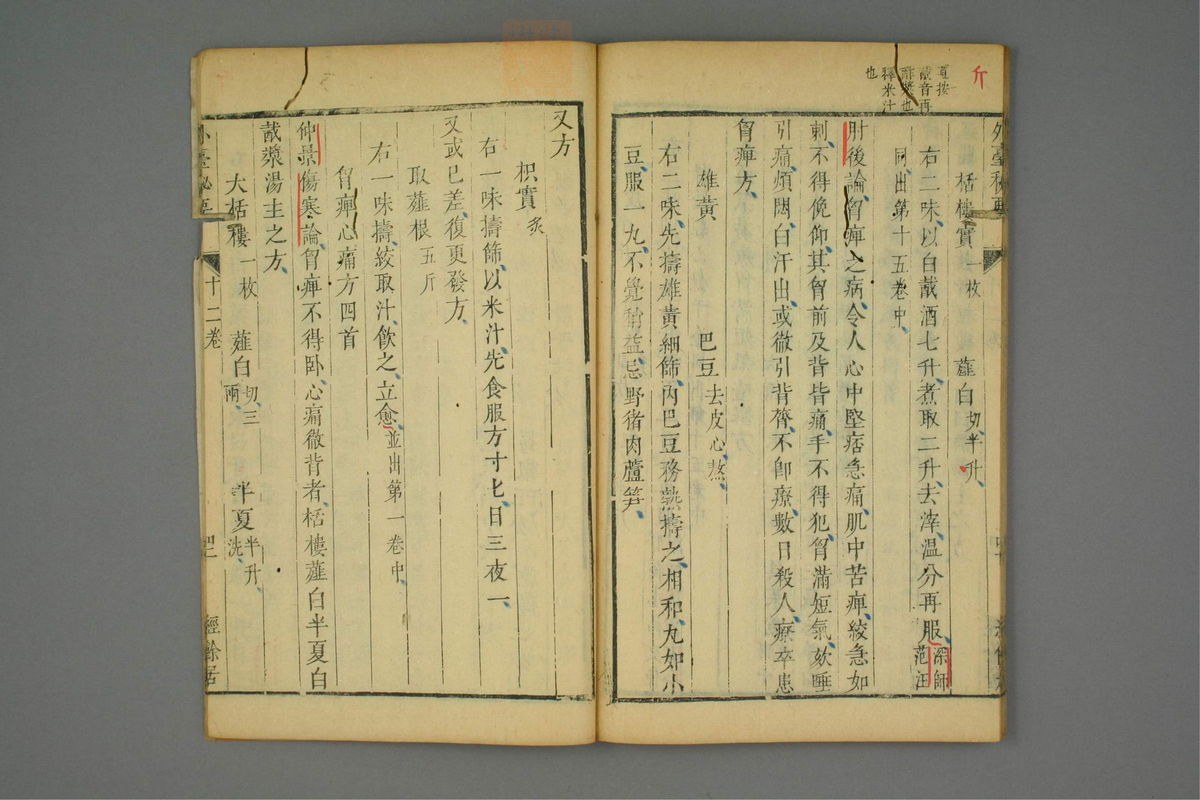 斤
真按
酨音再
酢漿也
釋米汁
也
外臺秘要
栝樓實一枚 薤白切半升
右二味以白酨酒七升煮取二升去滓溫分再服深師范汪
同出第十五卷中
肘後論胷痺之病令人心中堅痞急痛肌中苦痺絞急如
刺不得俛仰其胷前及背皆痛手不得犯胷滿短氣欬唾
引痛煩悶白汗出或徹引背膂不卽療數日殺人療卒患
胷痺方
雄黃 巴豆去皮心熬
右二味先擣雄黃細篩內巴豆務熟擣之相和丸如小
豆服一丸不覺稍益忌野猪肉蘆笋
又方
枳實炙
右一味擣篩以米汁先食服方寸匕日三夜一
又或已差復更發方
取薤根五斤
右一味擣絞取汁飲之立愈並出第一卷中
胷痺心痛方四首
仲景傷寒論胷痺不得卧心痛徹背者栝樓薤白半夏白
酨漿湯主之方
大栝樓一枚 薤白切三兩 半夏半升洗
外臺秘要 十二卷 四二 經餘居